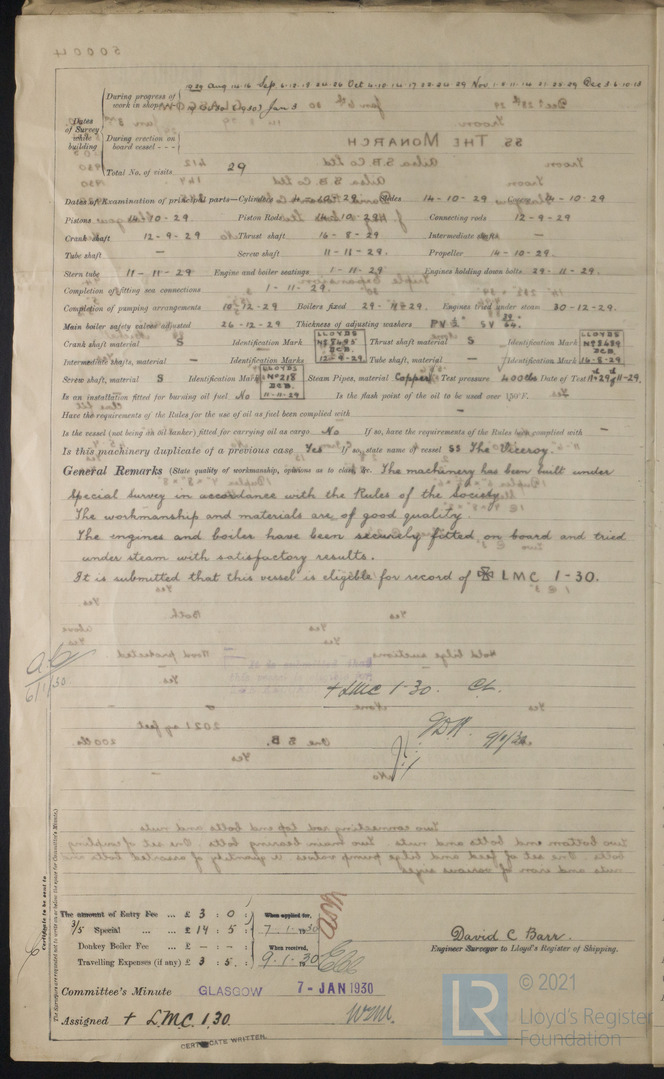 50004
Dates of Survey while building
During progress of work in shops
1929 Aug 14·16 Sep 6·12·18 24·26 Oct 4·10·14·17·22·24·29 Nov 1·8·11·14·21·25·29 Dec 3·6·10·12
During erection on board vessel - - -
Total No. of visits 29
Dates of Examination of principal parts—Cylinders 4-10-29 Slides 14-10-29
Pistons 14-10-29 Piston Rods 14-10-29 Connecting rods 12-9-29
Crank shaft 12-9-29 Thrust shaft 16-8-29 Intermediate shafts —
Tube shaft — Screw shaft 11-11-29 Propeller 14-10-29
Stern tube 11-11-29 Engine and boiler seatings 1-11-29 Engines holding down bolts 29-11-29
Completion of fitting sea connections 1-11-29
Completion of pumping arrangements 10-12-29 Boilers fixed 29-11-29 Engines tried under steam 30-12-29
Main boiler safety valves adjusted 24-12-29 Thickness of adjusting washers
Crank shaft material S Identification Mark LLOYDS No 8695 DCB 12-9-29 Thrust shaft material S Identification Mark LLOYDS No 8689 DCB 16-8-29
Intermediate shafts, material — Identification Marks — Tube shaft, material — Identification Mark —
Screw shaft, material S Identification Mark LLOYDS No 218 DCB 11-11-29 Steam Pipes, material Copper Test pressure 400 lbs Date of Test
Is an installation fitted for burning oil fuel No Is the flash point of the oil to be used over 150°F. —
Have the requirements of the Rules for the use of oil as fuel been complied with —
Is the vessel (not being an oil tanker) fitted for carrying oil as cargo No If so, have the requirements of the Rules been complied with —
Is this machinery duplicate of a previous case Yes If so, state name of vessel SS The Viceroy.
General Remarks (State quality of workmanship, opinions as to class, &c. The machinery has been built under
Special Survey in accordance with the Rules of the Society.
The workmanship and materials are of good quality.
The engines and boiler have been securely fitted on board and tried
under steam with satisfactory results.
It is submitted that this vessel is eligible for record of ✠ LMC 1-30.
6/1/30
+ LMC 1-30. CL.
9/1/30
The amount of Entry Fee ... £ 3 : 0 : When applied for,
3/5 Special ... £ 14 : 5 : 7.1.1930
Donkey Boiler Fee ... £ — : — : When received,
Travelling Expenses (if any) £ 3 : 5 : 9.1.30
David C Barr.
Engineer Surveyor to Lloyd's Register of Shipping.
Committee's Minute GLASGOW 7-JAN 1930
Assigned + LMC. 1,30.
CERTIFICATE WRITTEN
© 2021
LR Lloyd's Register
Foundation